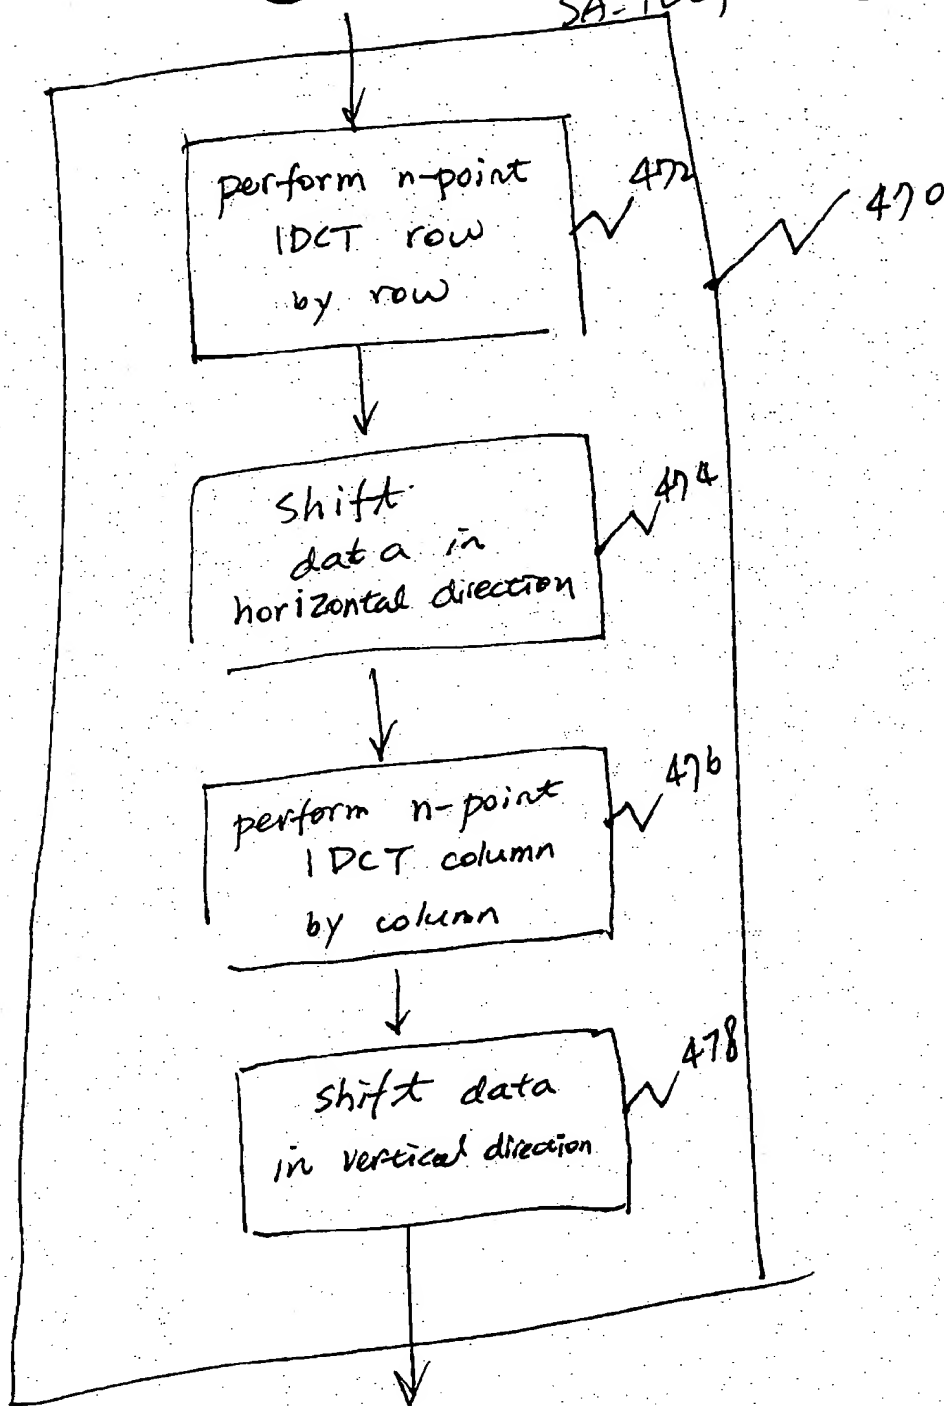 SA-IDCT
perform n-point
IDCT row
by row
472
470
shift
data in
horizontal direction
474
perform n-point
IDCT column
by column
476
shift data
in vertical direction
478